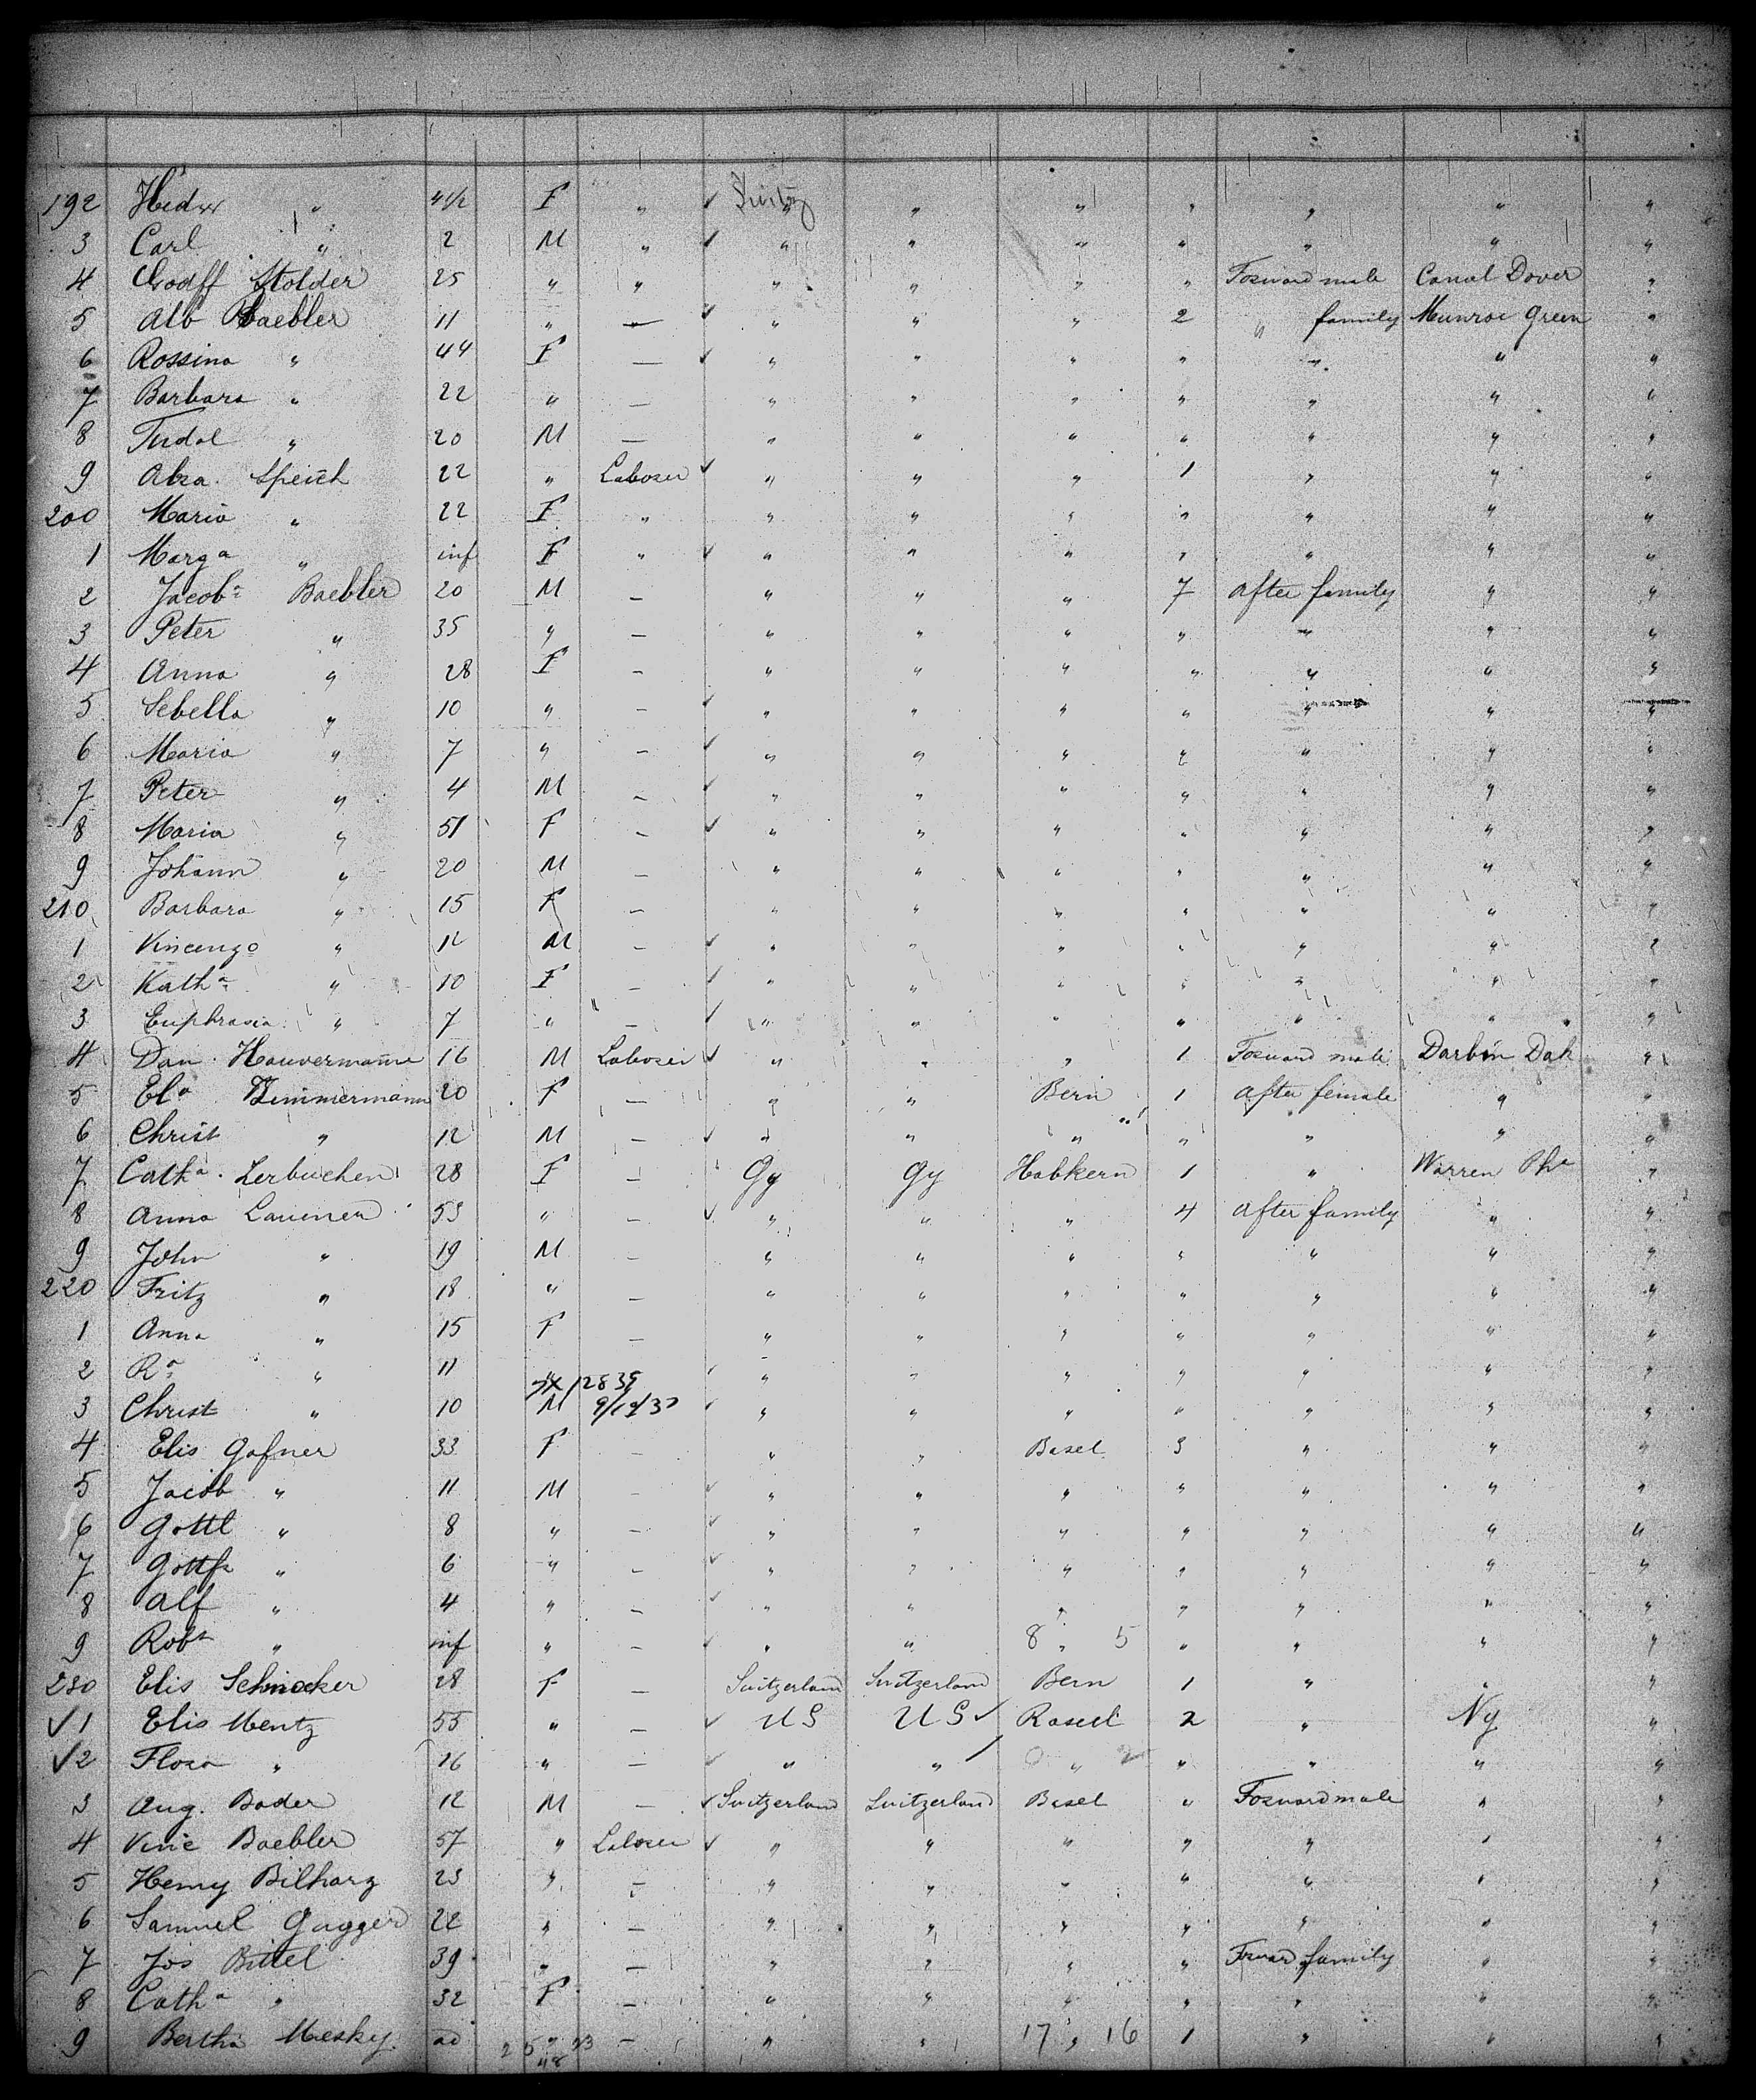 192 Hedw " 4 1/2 F " ✓ Switz " " " " " " "
3 Carl " 2 M " ✓ " " " " " " "
4 Godff Stolder 25 " " " " " " Forward male Canal Dover "
5 Alb Baebler 11 " — ✓ " " " 2 " family Munroe Green "
6 Rossina " 44 F — ✓ " " " " " " "
7 Barbara " 22 " — " " " " " " "
8 Tudol " 20 M — " " " " " " "
9 Abra. Speich 22 " Laborer ✓ " " " 1 " " "
200 Maria " 22 F " " " " " " " "
1 Marga " inf F " ✓ " " " " " " "
2 Jacoba Baebler 20 M — " " " 7 After family " "
3 Peter " 35 " — " " " " " " "
4 Anna " 28 F — " " " " " " "
5 Sebella " 10 " — ✓ " " " " " " "
6 Maria " 7 " — ✓ " " " " " " "
7 Peter " 4 M — ✓ " " " " " " "
8 Maria " 51 F — ✓ " " " " " " "
9 Johann " 20 M — " " " " " " "
210 Barbara " 15 F — " " " " " " "
1 Vincenzo " 12 M — ✓ " " " " " " "
2 Katha " 10 F — ✓ " " " " " " "
3 Euphrasia " 7 " — ✓ " " " " " " "
4 Dan. Hauvermanne 16 M Laborer ✓ " " " 1 Forward male Darbin Dak "
5 Ela Zimmermann 20 F — " " Bern 1 After female " "
6 Christ " 12 M — ✓ " " " " " " "
7 Catha. Lerbuchen 28 F — Gy Gy Habkern 1 " Warren Pha "
8 Anna Lauener 53 " — ✓ " " " 4 After family " "
9 John " 19 M — " " " " " " "
220 Fritz " 18 " — " " " " " " "
1 Anna " 15 F — " " " " " " "
2 Ra " 11 " ✓ " " " " " " "
7X/2839
3 Christ " 10 M 9/19/30 ✓ " " " " " " "
4 Elis Gafner 33 F — " " Basel 3 " " "
5 Jacob " 11 M — ✓ " " " " " " "
6 Gottl " 8 " — ✓ " " " " " " "
7 Gottfr " 6 " — ✓ " " " " " " "
8 Alf " 4 " — ✓ " " " " " " "
9 Robt " inf " — ✓ " " 8 " 5 " " " "
230 Elis Schnocker 28 F — Switzerland Switzerland Bern 1 " " "
✓1 Elis Mentz 55 " — ✓ US US ✓ Basel 2 " Ny "
✓2 Flora " 16 " — ✓ " " " " " " "
3 Aug. Bader 12 M — ✓ Switzerland Switzerland Basel " Forward male " "
4 Vinc Baebler 57 " Laborer ✓ " " " " " " "
5 Henry Bilharz 23 " — " " " " " " "
6 Samuel Gugger 22 " — " " " " " " "
7 Jos Bittel 39 " — " " " " Forwar family " "
8 Catha " 32 F — " " " " " " "
9 Bertha Mesky ad " — " " 17 " 16 1 " " "